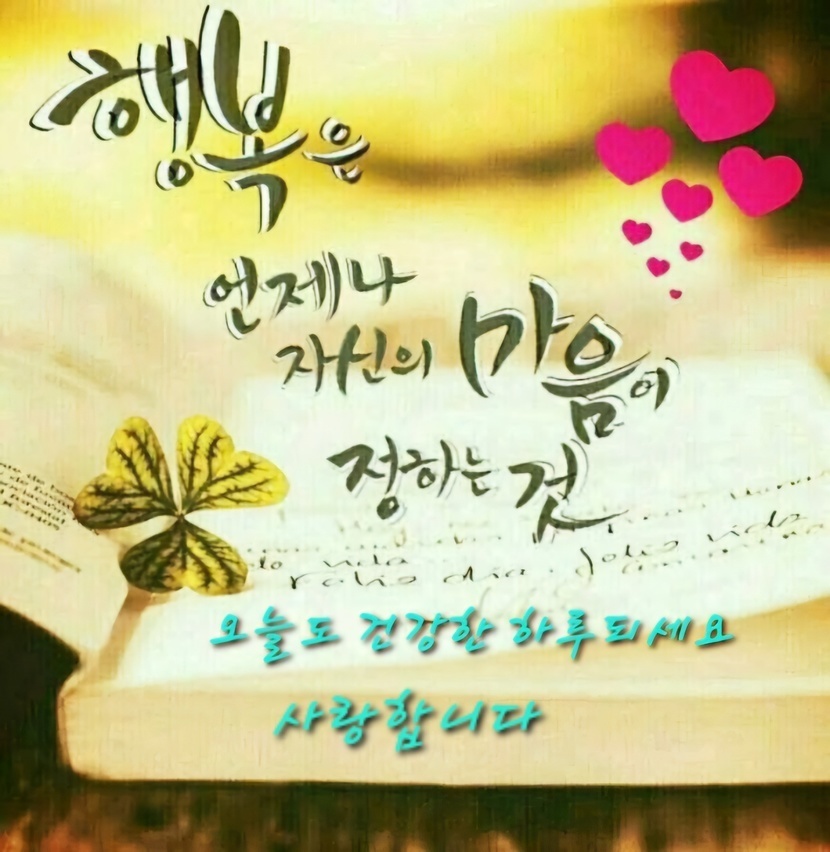 행복은
언제나
자신의 마음이
정하는 것
오늘도 건강한 하루되세요
사랑합니다